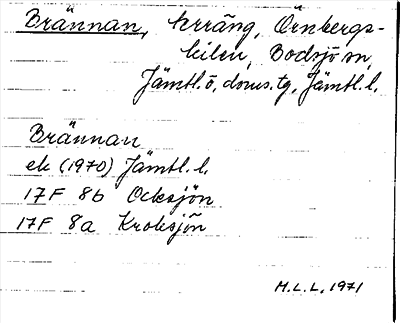 Brännan, terräng, Örnbergs-
kilen, Bodsjö sn,
Jämtl. ö. doms. tg, Jämtl. l.
Brännan
ek (1970) Jämtl. l.
17F 8b Ocksjön
17F 8a Kroksjön
M.L.L. 1971